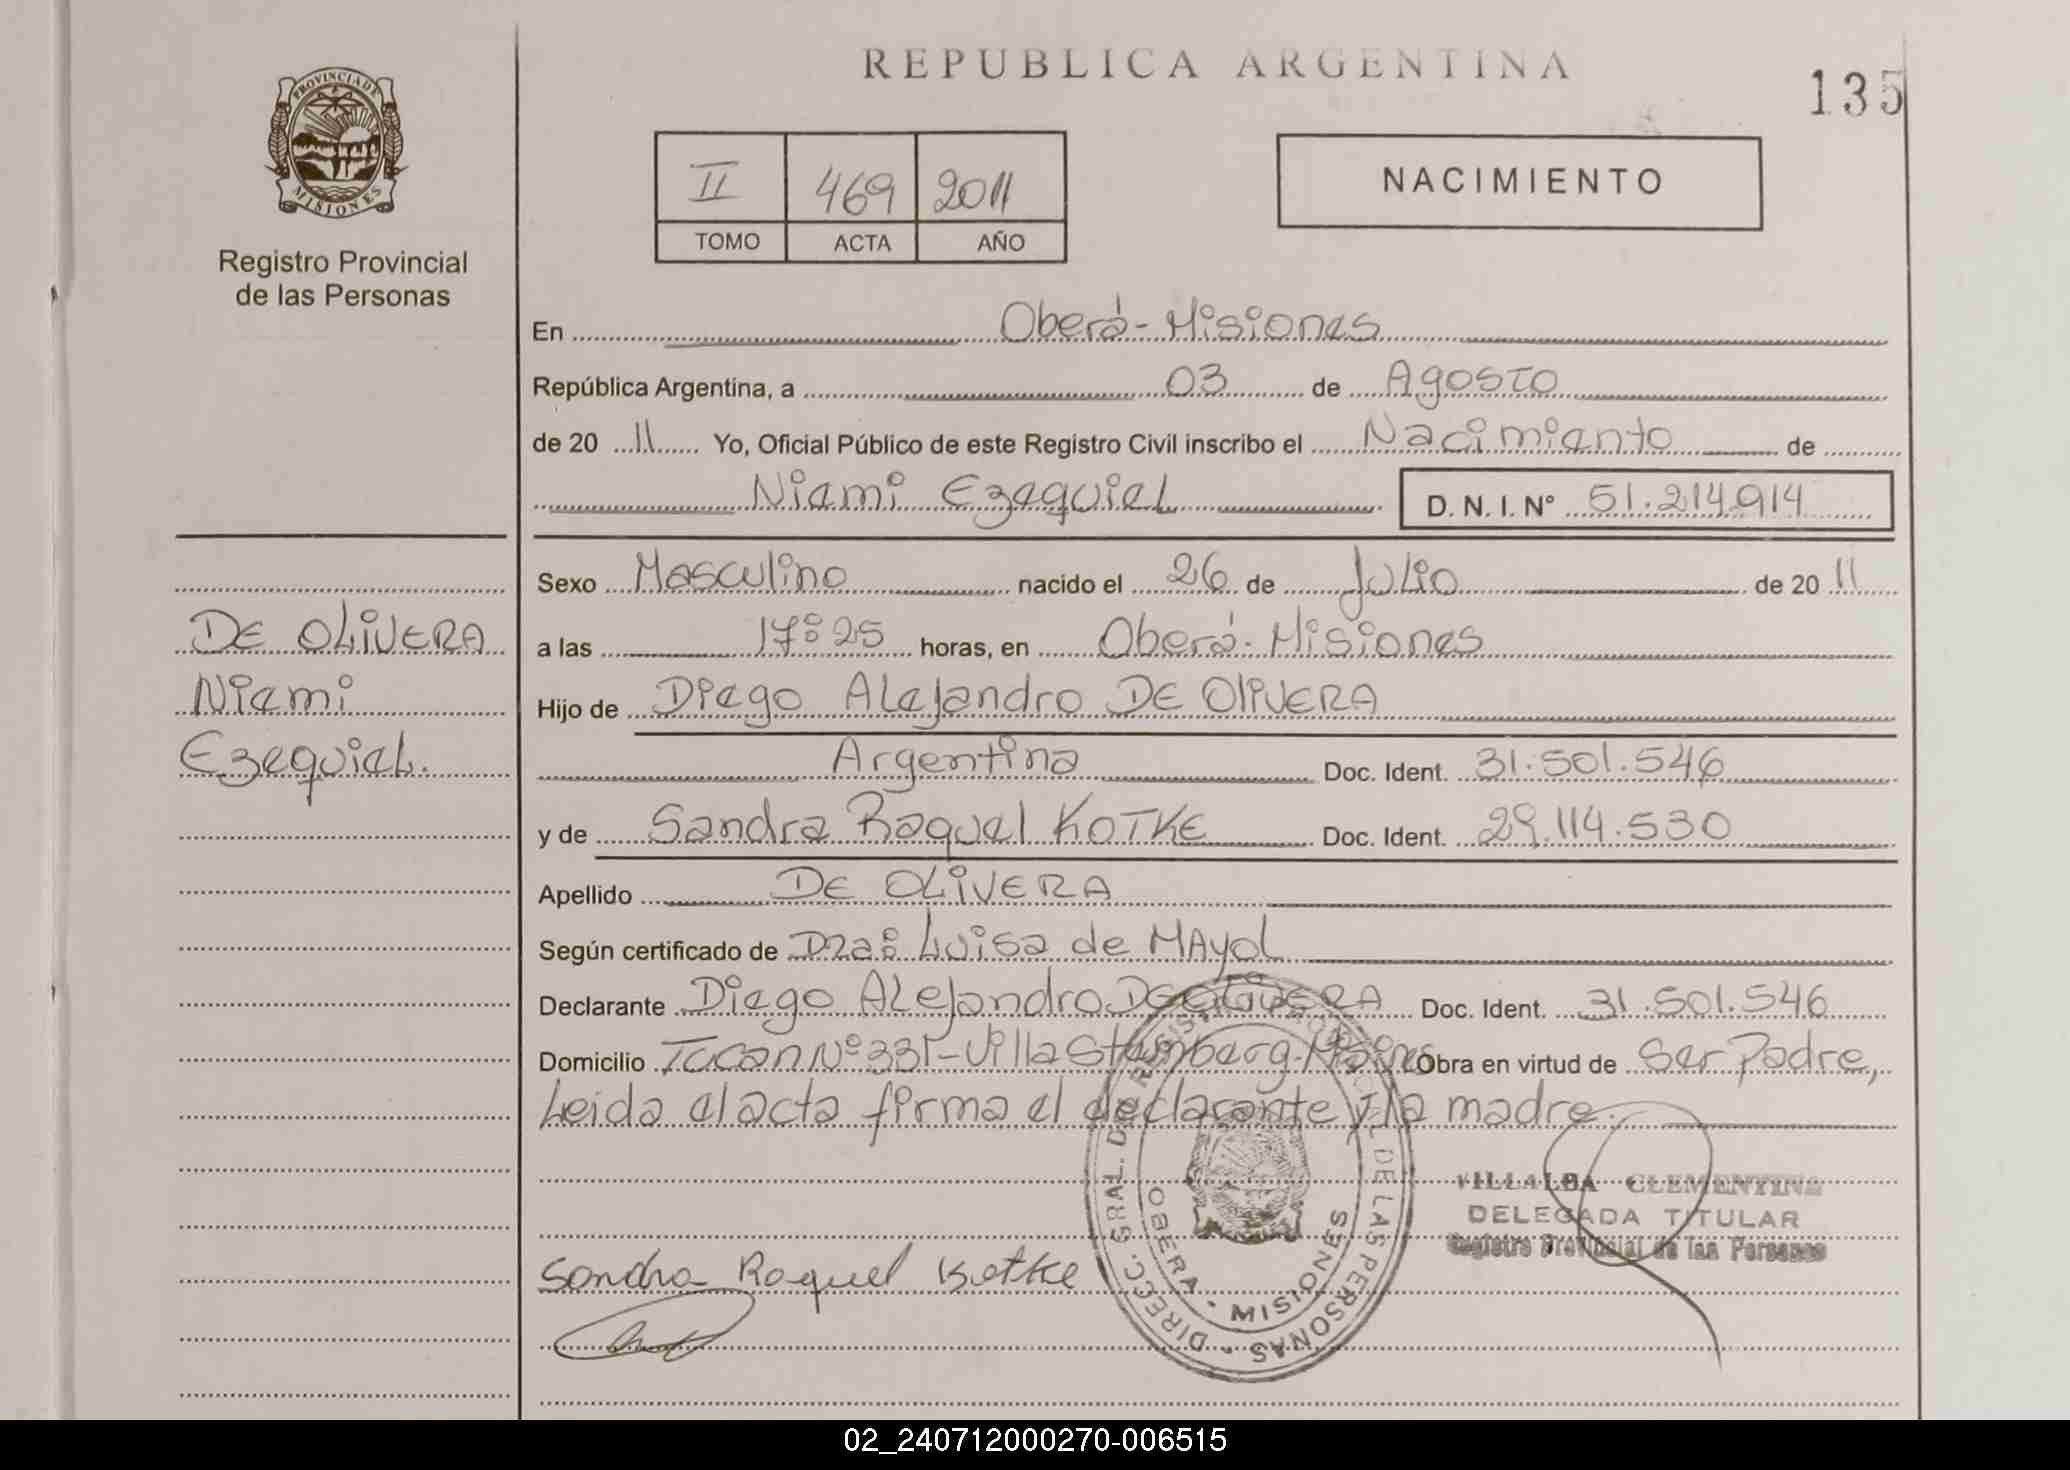 REPUBLICA ARGENTINA
135
PROVINCIA DE
MISIONES
Registro Provincial
de las Personas
II 469 2011
TOMO ACTA AÑO
NACIMIENTO
En Oberá-Misiones
República Argentina, a 03 de Agosto
de 20 11 Yo, Oficial Público de este Registro Civil inscribo el Nacimiento de
Niemi Ezequiel D. N. I. N° 51.214.914
Sexo Masculino nacido el 26 de Julio de 20 11
a las 17:25 horas, en Oberá-Misiones
Hijo de Diego Alejandro DE OLIVERA
Argentina Doc. Ident. 31.501.546
y de Sandra Raquel KOTKE Doc. Ident. 29.114.530
Apellido DE OLIVERA
Según certificado de Dra: Luisa de MAyol
Declarante Diego ALejandro DE OLIVERA Doc. Ident. 31.501.546
Domicilio Tucan N° 331-Villa Stemberg- Obra en virtud de Ser Padre,
Leida el acta firma el declarante y la madre.
DE OLIVERA
Niemi
Ezequiel.
VILLALBA CLEMENTINA
DELEGADA TITULAR
Registro Provincial de las Personas
Sandra Raquel Kotke
DIRECC. GRAL. DEL REGISTRO PROVINCIAL DE LAS PERSONAS
OBERA - MISIONES
02_240712000270-006515